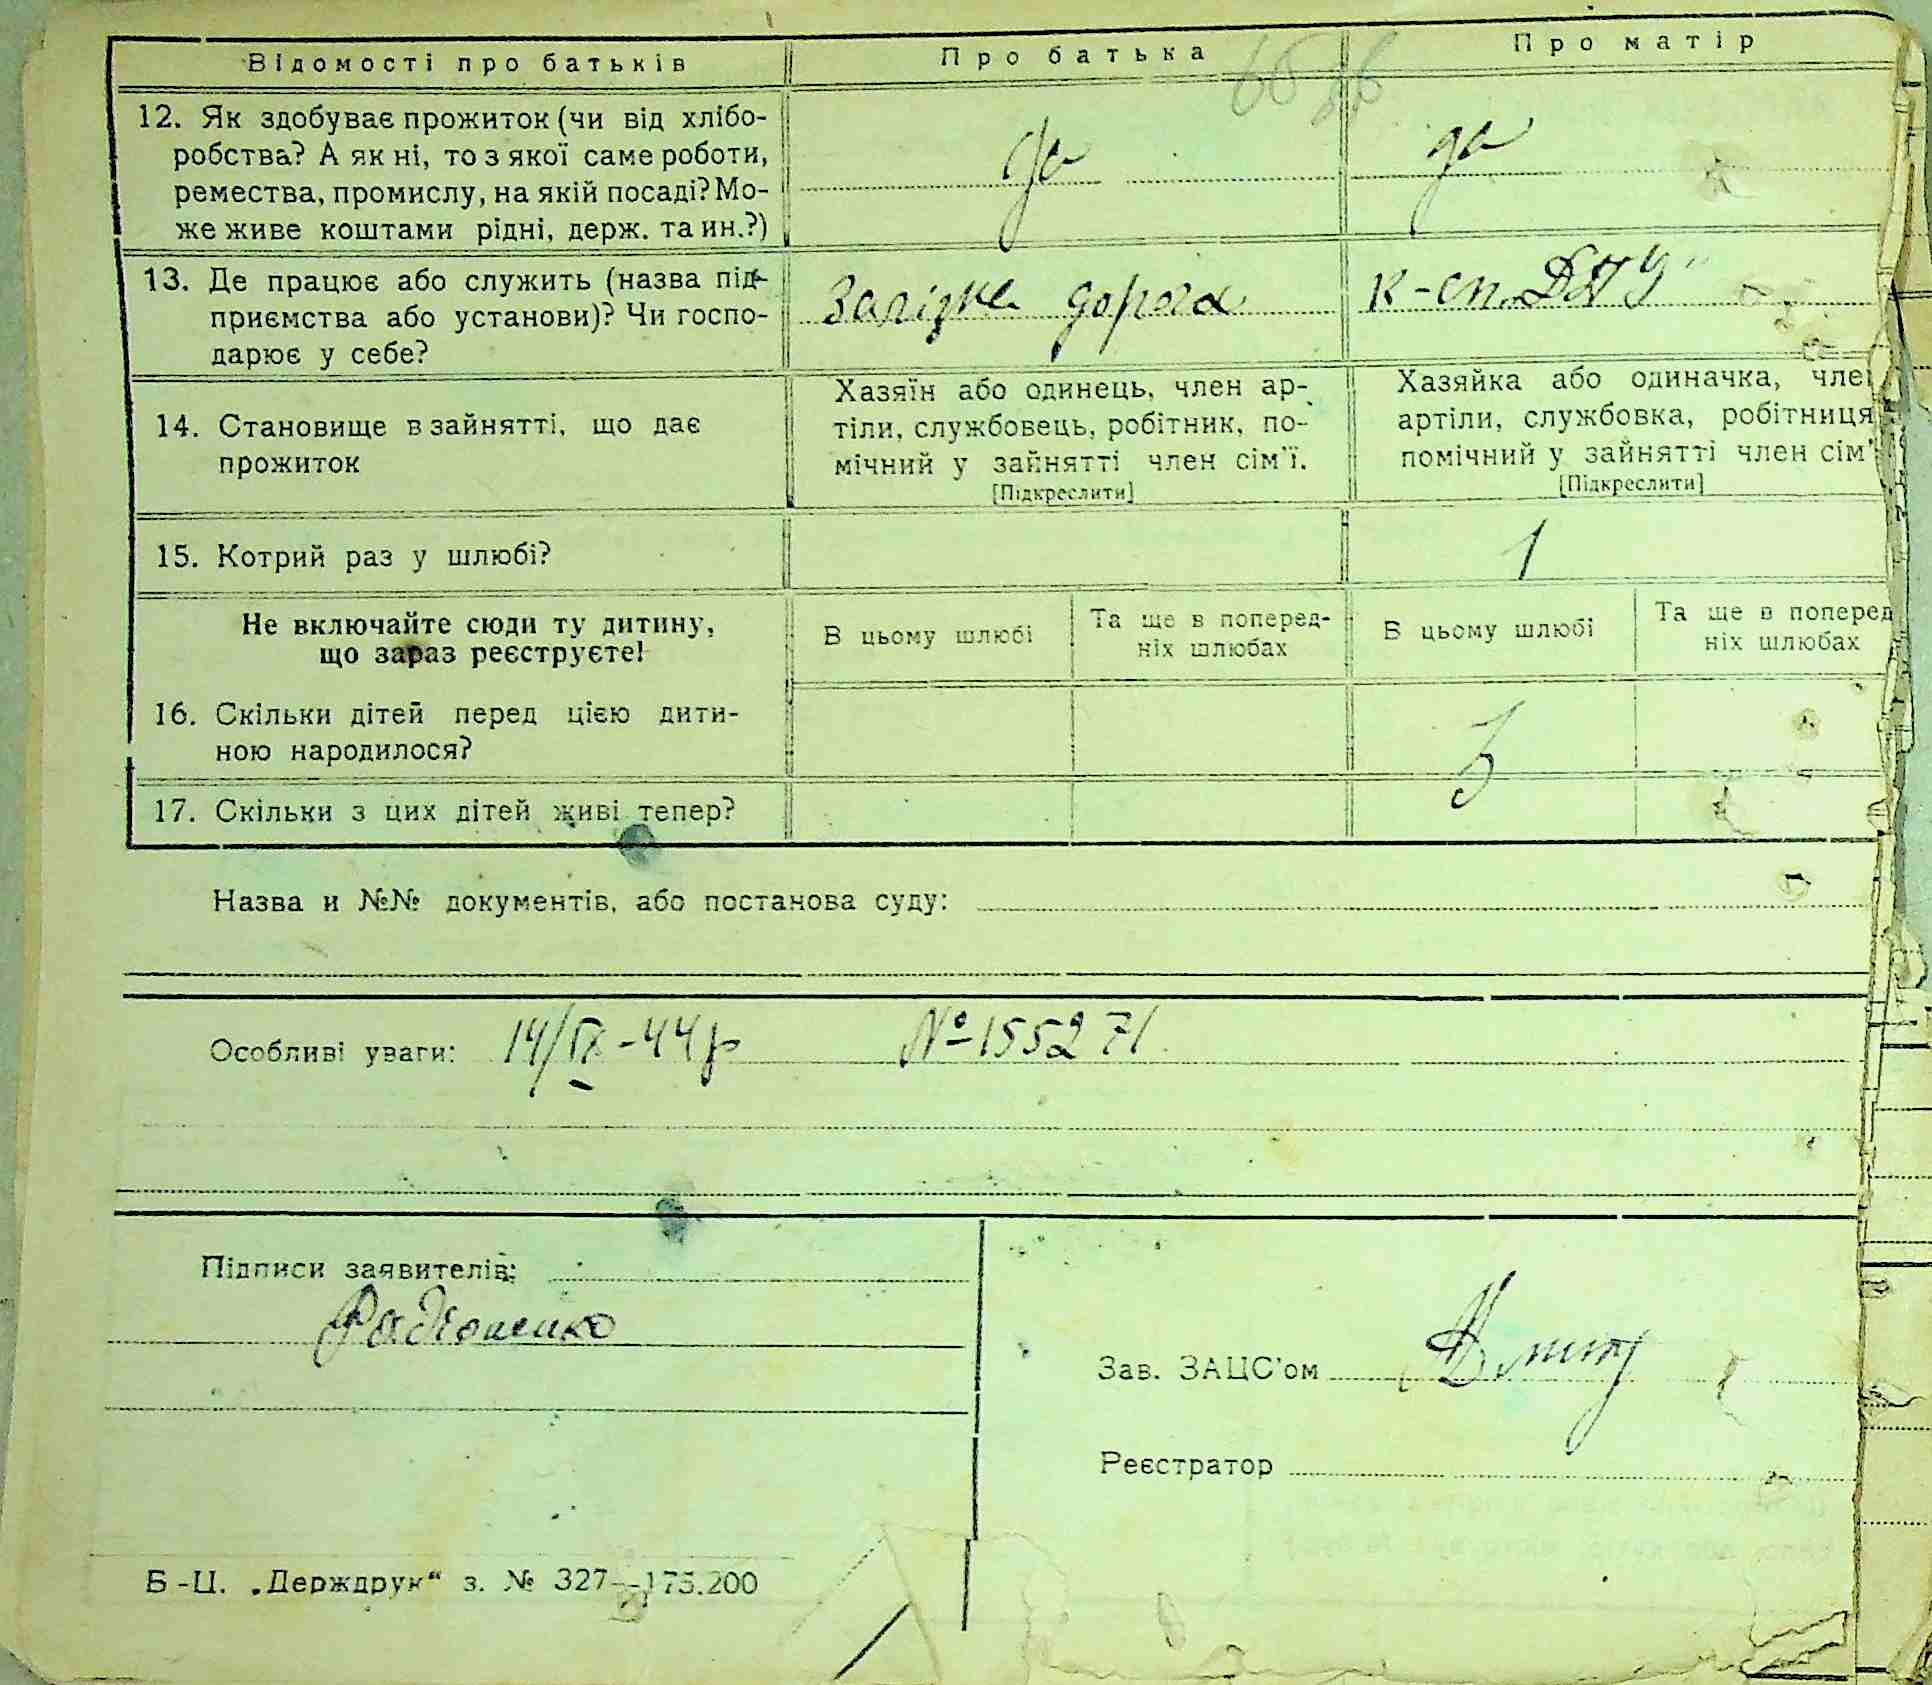 Відомості про батьків
Про батька
Про матір
12. Як здобуває прожиток (чи від хлібо-
робства? А як ні, то з якої саме роботи,
ремества, промислу, на якій посаді? Мо-
же живе коштами рідні, держ. та ин.?)
да
да
13. Де працює або служить (назва під-
приємства або установи)? Чи госпо-
дарює у себе?
Залізна дорога
к-сп.
14. Становище в зайнятті, що дає
прожиток
Хазяїн або одинець, член ар-
тіли, службовець, робітник, по-
мічний у зайнятті член сім'ї.
[Підкреслити]
Хазяйка або одиначка, член
артіли, службовка, робітниця
помічний у зайнятті член сім'
[Підкреслити]
15. Котрий раз у шлюбі?
1
Не включайте сюди ту дитину,
що зараз реєструєте!
В цьому шлюбі
Та ще в поперед-
ніх шлюбах
В цьому шлюбі
Та ще в поперед
ніх шлюбах
16. Скільки дітей перед цією дити-
ною народилося?
3
17. Скільки з цих дітей живі тепер?
Назва и №№ документів, або постанова суду:
Особливі уваги: 14/IX-44р №155271
Підписи заявителів:
Зав. ЗАЦС'ом
Реєстратор
Б-Ц. „Держдрук“ з. № 327—175.200